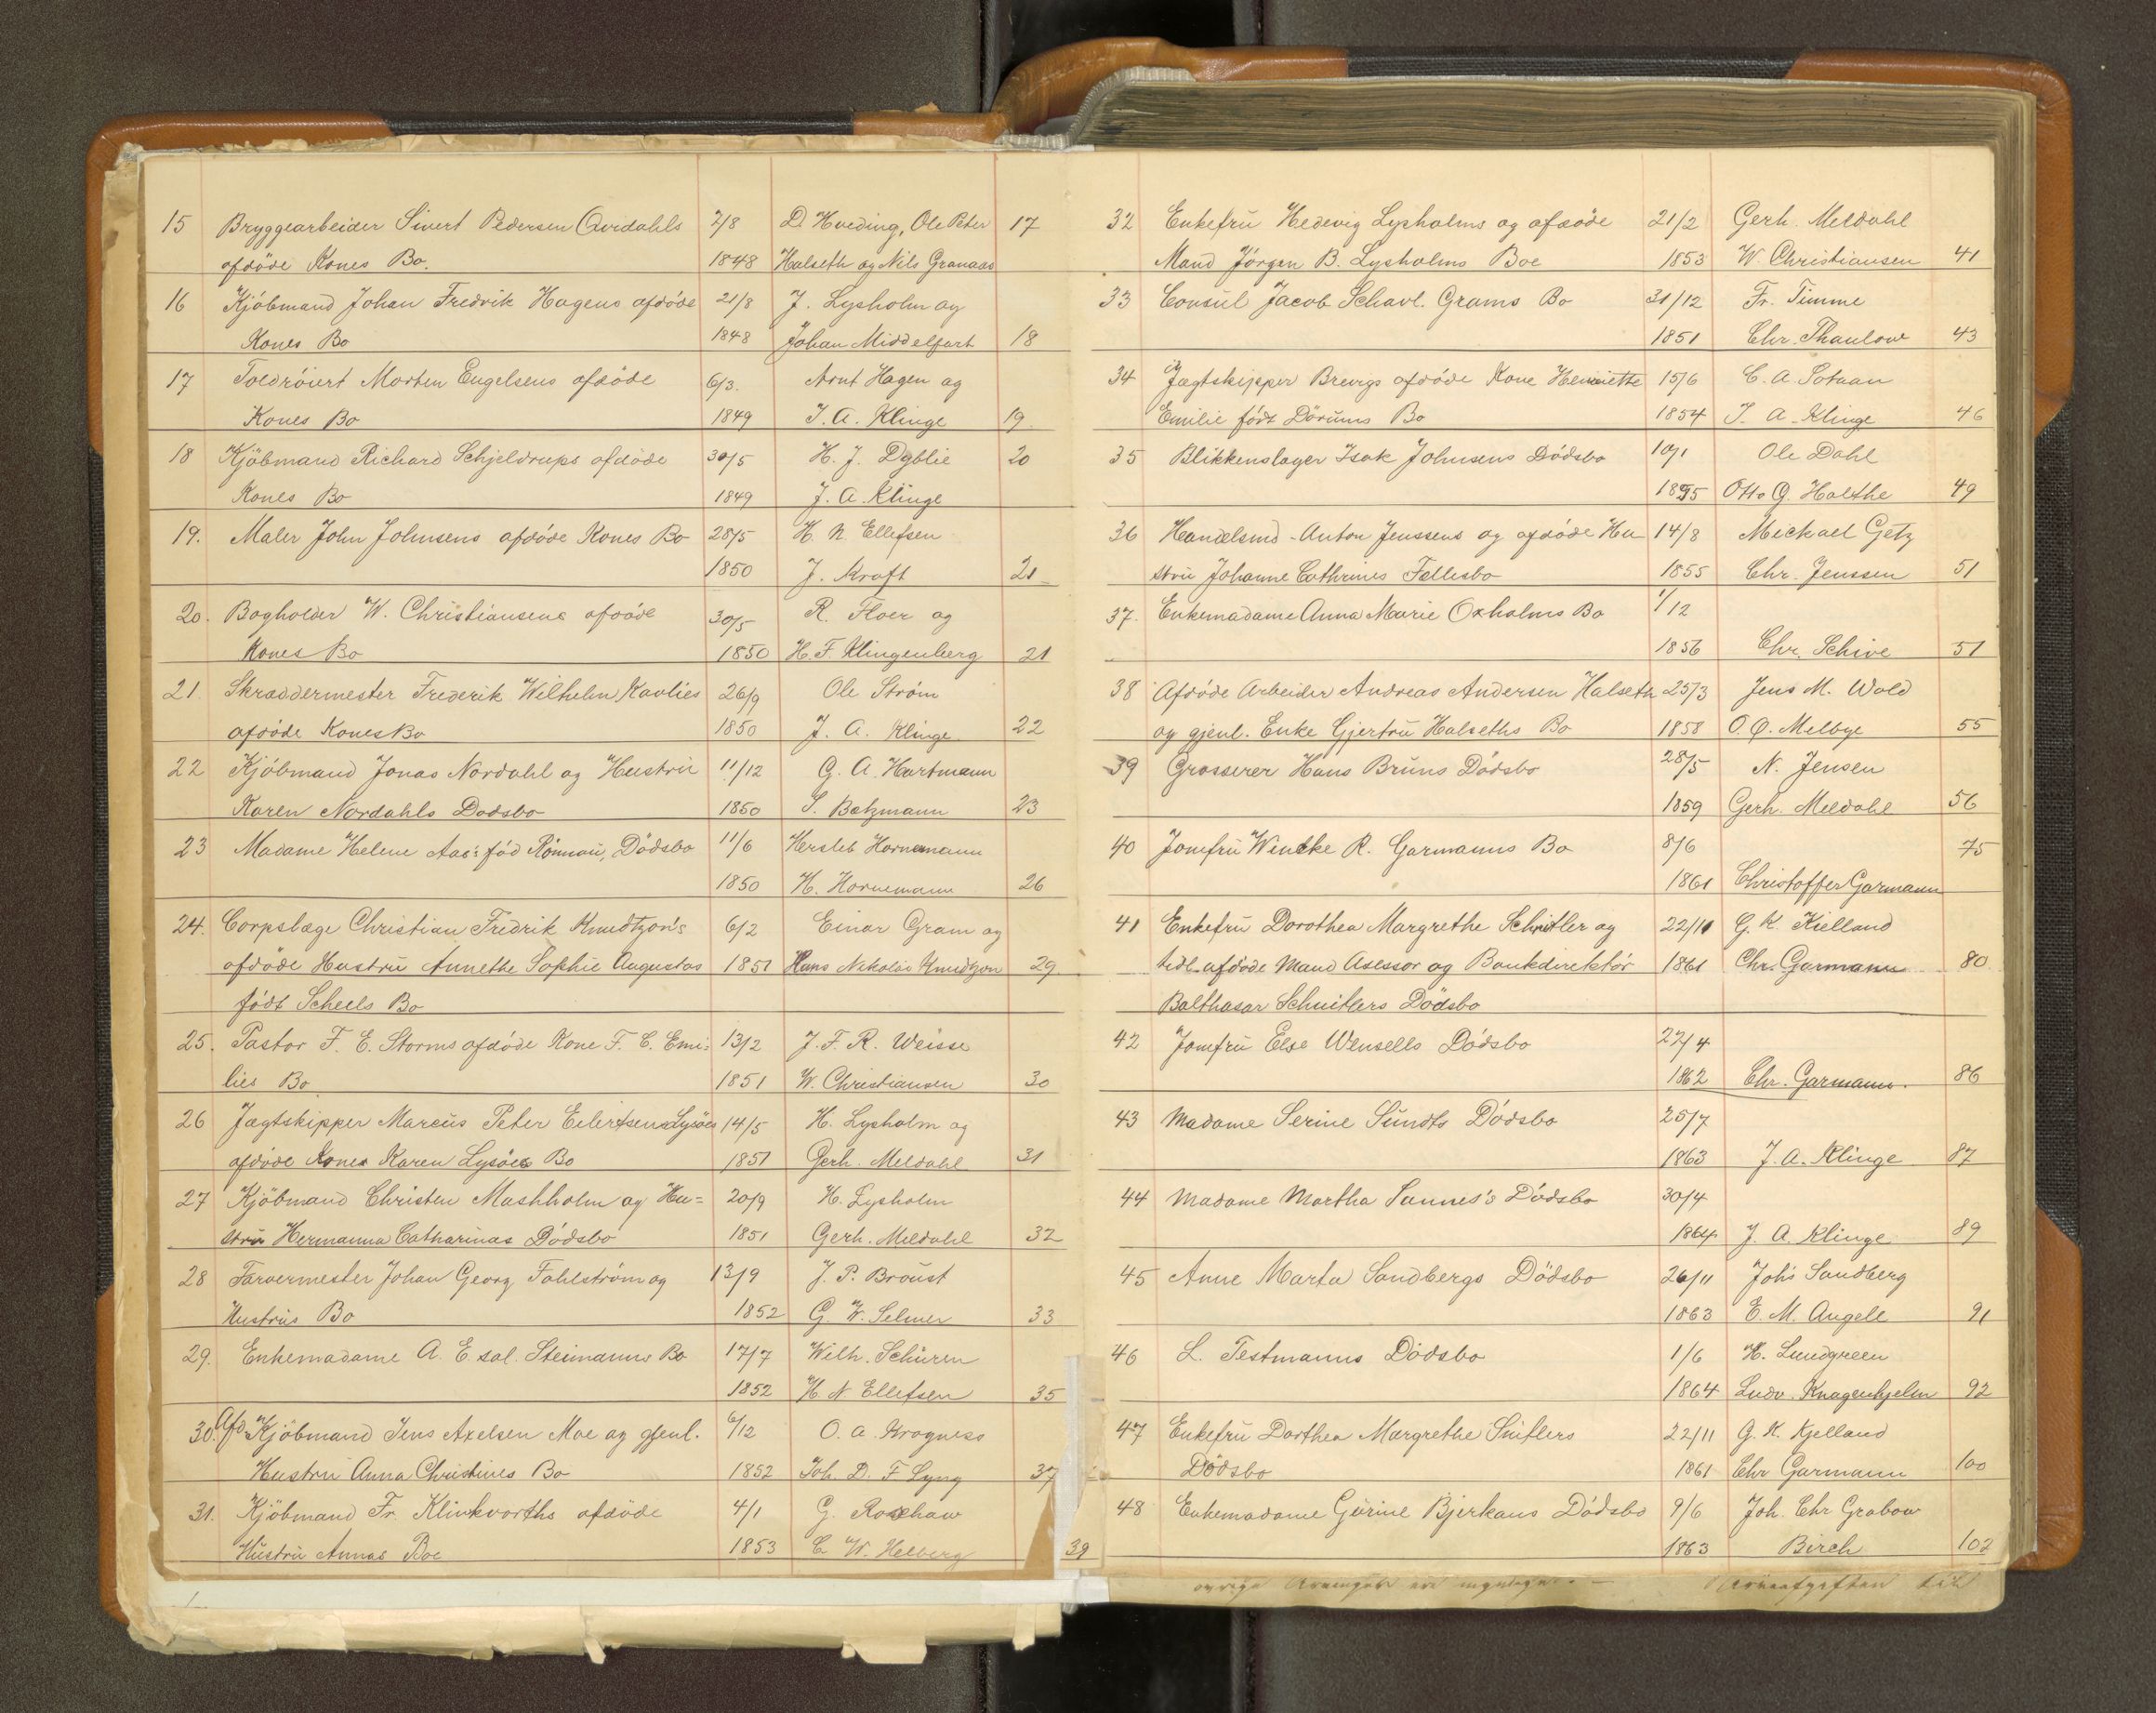 15 Bryggearbeider Sivert Pedersen Qvidahls 7/8 D Hveding, Ole Peter 17
afdöde Kones Bo. 1848 Halseth og Nils Granaas
16 Kjöbmand Johan Fredrik Hagens afdöde 21/8 J. Lysholm og
Kones Bo 1848 Johan Middelfart 18
17 Toldröiert Morten Engelsens afdöde 6/3. Arnt Hagen og
Kones Bo 1849 J. A. Klinge 19
18 Kjöbmand Richard Schjeldrups afdöde 30/5 H. J. Dyblie 20
Kones Bo 1849 J. A. Klinge
19. Maler John Johnsens afdöde Kones Bo 28/5 H. N. Ellefsen
1850 J. Kraft 21
20. Bogholder W. Christiansens afdöde 30/5 R. Floer og
Kones Bo 1850 H. F. Klingenberg 21
21 Skræddermester Frederik Wilhelm Kavlies 26/9 Ole Ström
afdöde Kones Bo 1850 J. A. Klinge 22
22 Kjöbmand Jonas Nordahl og Hustru 11/12 G. A. Hartmann
Karen Nordahls Dodsbo 1850 J. Botzmann 23
23 Madame Helene Aas's föd Rönnau, Dödsbo 11/6 Hersleb Hornemann
1850 H. Hornemann 26
24. Corpslæge Christian Fredrik Knudtzon's 6/2 Einar Gram og
afdöde Hustru Annethe Sophie Augustas 1851 Hans Nikolai Knudtzon 29
födt Scheels Bo
25. Pastor F. E. Storms afdöde Kone F. C. Emi= 13/2 J. F. R. Weisse
lies Bo 1851 W. Christiansen 30
26 Jægtskipper Marcus Peter Eilertsens Lysöes 14/5 H. Lysholm og
afdöde Kones Karen Lysöes Bo 1851 Gerh. Meldahl 31
27 Kjöbmand Christen Mashholm og Hu= 20/9 H. Lysholm
stru Hermanna Catharinas Dödsbo 1851 Gerh. Meldahl 32
28 Farvermester Johan Georg Fahlström og 13/9 J. P. Broust
Hustrus Bo 1852 G. W. Selmer 33
29. Enkemadame A. E. sal. Steimanns Bo 17/7 Wilh. Schüren
1852 H. N Ellefsen 35
30. Afd. Kjöbmand Jens Axelsen Moe og gjenl. 6/12 O. A. Krogness
Hustru Anna Christines Bo 1852 Joh. D. F Lyng 37
31. Kjöbmand Fr. Klinkvorths afdöde 4/1 G. Roschaw
Hustru Annas Boe 1853 C. W. Helberg 39
32 Enkefru Hedevig Lysholms og afdöde 21/2 Gerh. Meldahl
Mand Jörgen B. Lysholms Boe 1853 W Christiansen 41
33 Consul Jacob Schavl. Grams Bo 31/12 Fr. Timme
1851 Chr. Thaulow 43
34 Jægtskipper Brevigs afdöde Kone Henriette 15/6 C. A. Sotaan
Emilie födt Dörums Bo 1854 J. A. Klinge 46
35 Blikkenslager Isak Johnsens Dödsbo 10/1 Ole Dahl
1855 Otto G. Holthe 49
36 Handelsmd. Anton Jenssens og afdöde Hu 14/8 Michael Getz
stru Johanne Cathrines Fellesbo 1855 Chr. Jenssen 51
37. Enkemadame Anna Marie Oxholms Bo 1/12
1856 Chr. Schive 51
38 Afdöde Arbeider Andreas Andersen Halseth 25/3 Jens M. Wold
og gjenl. Enke Gjertru Halseths Bo 1858 O. O. Melbye 55
39 Grosserer Hans Bruns Dödsbo 28/5 N. Jensen
1859 Gerh. Meldahl 56
40 Jomfru Wencke R. Garmanns Bo 8/6 75
1861 Christoffer Garmann
41 Enkefru Dorothea Margrethe Schnitler og 22/11 G. K. Kielland
tidl. afdöde Mand Asessor og Bankdirektör 1861 Chr. Garmann 80
Balthasar Schnitlers Dödsbo
42 Jomfru Else Wensells Dödsbo 22/4
1862 Chr. Garmann. 86
43 Madame Serine Sundts Dödsbo 25/7
1863 J. A. Klinge 87
44 Madame Martha Sannes's Dödsbo 30/4
1864 J. A. Klinge 89
45 Anne Marta Sandbergs Dödsbo 26/11 Johs Sandberg
1863 E. M. Angell 91
46 L. Testmanns Dödsbo 1/6 H. Lundgreen
1864 Ludv. Knagenhjelm 92
47 Enkefru Dorthea Margrethe Snitlers 22/11 G. K. Kjelland
Dödsbo 1861 Chr Garmann 100
48 Enkemadame Gurine Bjerkans Dödsbo 9/6 Joh. Chr Grabow
1863 Birch 102